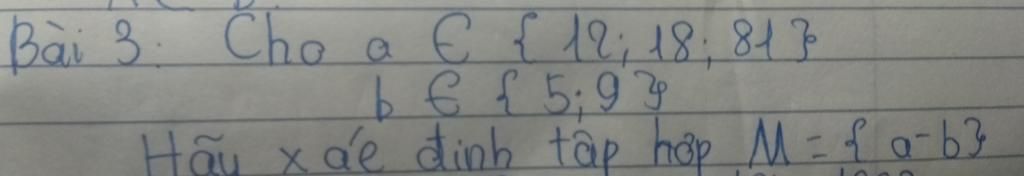 Bài 3: Cho a ∈ { 12; 18; 81}
b ∈ { 5; 9}
Hãy xác định tập hợp M = { a-b}